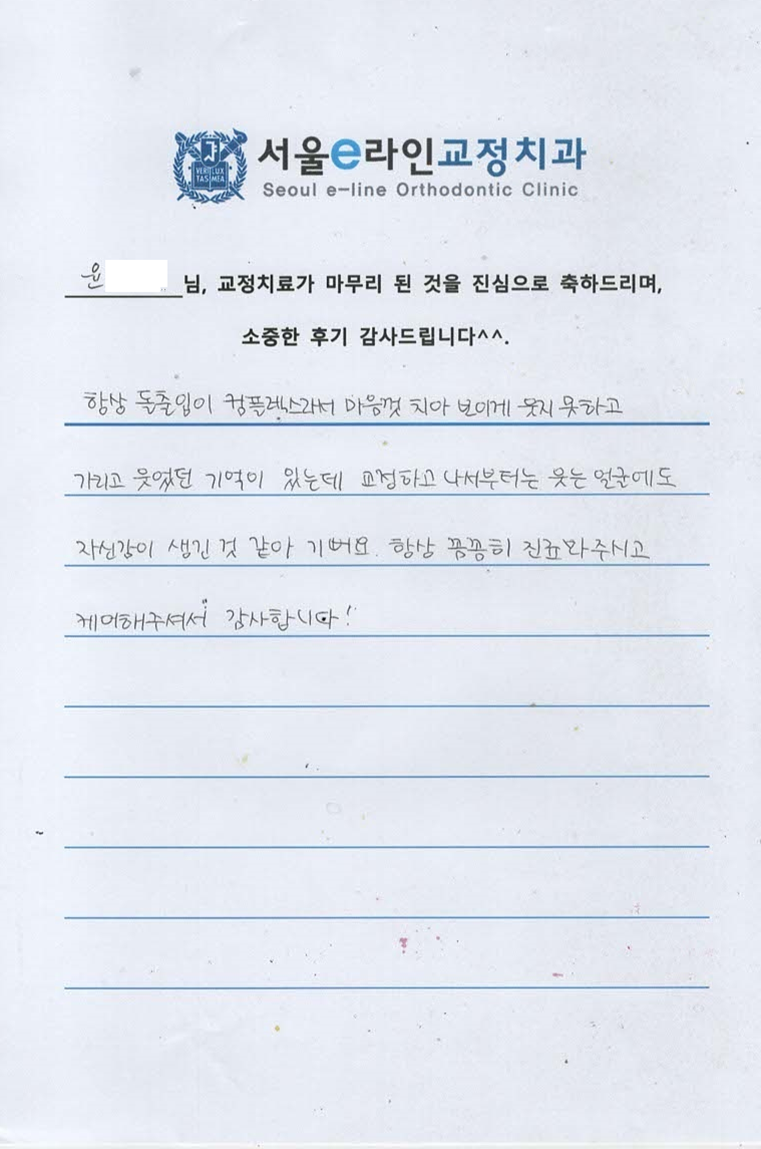 VERI LUX
TAS MEA
서울e라인교정치과
Seoul e-line Orthodontic Clinic
윤 님, 교정치료가 마무리 된 것을 진심으로 축하드리며,
소중한 후기 감사드립니다^^.
항상 돌출입이 컴플렉스라서 마음껏 치아 보이게 웃지 못하고
가리고 웃었던 기억이 있는데 교정하고 나서부터는 웃는 얼굴에도
자신감이 생긴 것 같아 기뻐요. 항상 꼼꼼히 진료봐주시고
케어해주셔서 감사합니다!